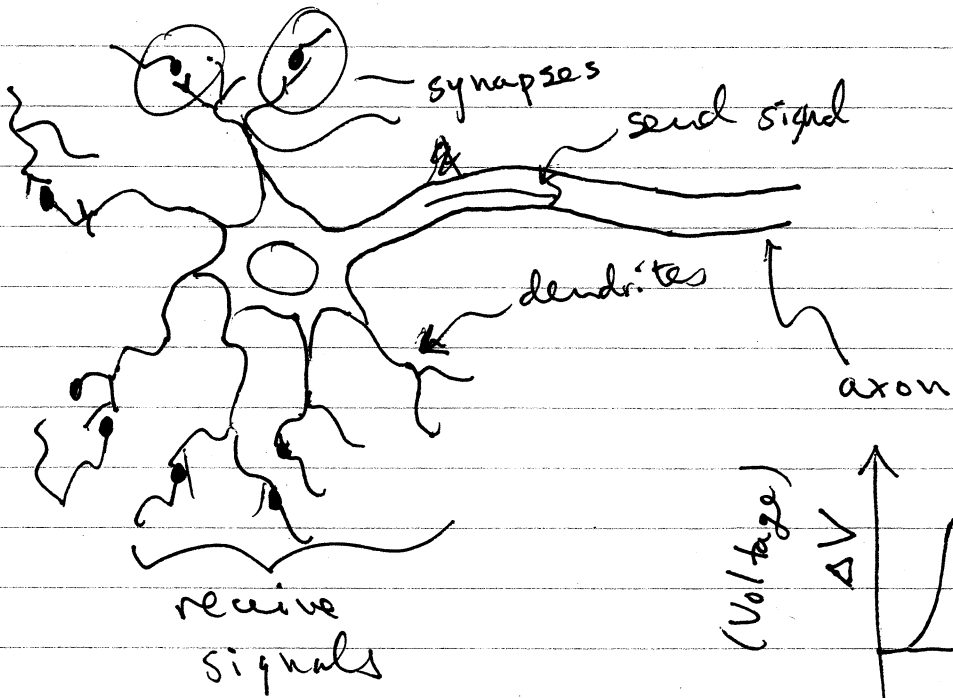 synapses
send signal
dendrites
axon
receive
signals
(Voltage)
ΔV